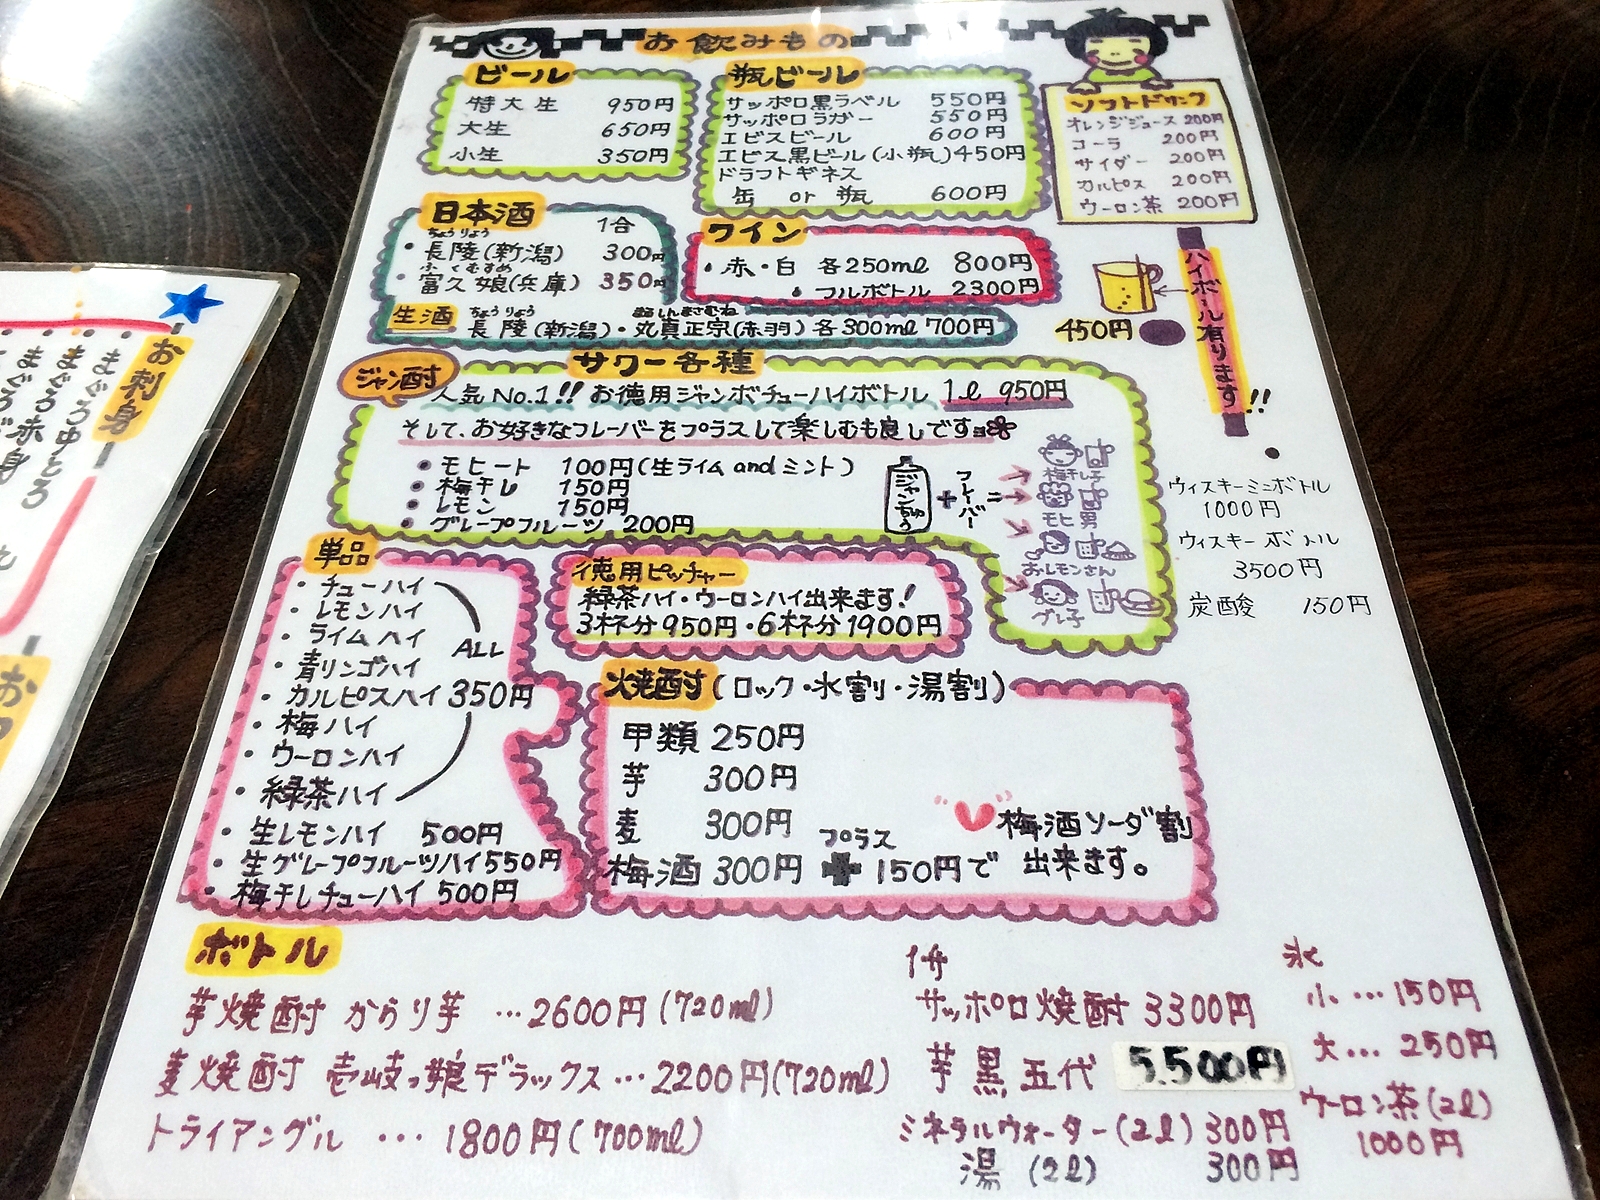 お飲みもの
ビール
特大生 950円
大生 650円
小生 350円
瓶ビール
サッポロ黒ラベル 550円
サッポロラガー 550円
エビスビール 600円
エビス黒ビール(小瓶)450円
ドラフトギネス
缶 or 瓶 600円
ソフトドリンク
オレンジジュース 200円
コーラ 200円
サイダー 200円
カルピス 200円
ウーロン茶 200円
日本酒 1合
ちょうりょう
・長陵(新潟) 300円
ふくむすめ
・富久娘(兵庫) 350円
ワイン
・赤・白 各250ml 800円
・フルボトル 2300円
生酒
ちょうりょう
長陵(新潟)・丸真正宗(赤羽)各300ml 700円
ハイボール有ります!!
450円
サワー各種
ジャン酎
人気No.1!! お徳用ジャンボチューハイボトル 1ℓ 950円
そして、お好きなフレーバーをプラスして楽しむも良しです
・モヒート 100円(生ライムandミント)
・梅干し 150円
・レモン 150円
・グレープフルーツ 200円
ジャンちゅう + フレーバー =
梅干し子
モヒ男
おレモンさん
グレ子
ウィスキーミニボトル
1000円
ウィスキーボトル
3500円
炭酸 150円
単品
・チューハイ
・レモンハイ
・ライムハイ
・青リンゴハイ
・カルピスハイ
・梅ハイ
・ウーロンハイ
・緑茶ハイ
ALL 350円
・生レモンハイ 500円
・生グレープフルーツハイ550円
・梅干しチューハイ 500円
徳用ピッチャー
緑茶ハイ・ウーロンハイ出来ます!
3杯分950円・6杯分1900円
焼酎(ロック・水割・湯割)
甲類 250円
芋 300円
麦 300円
梅酒 300円 プラス + 150円で 梅酒ソーダ割出来ます。
ボトル
芋焼酎 からり芋 …2600円(720ml)
麦焼酎 壱岐っ娘デラックス…2200円(720ml)
トライアングル …1800円(700ml)
1升
サッポロ焼酎 3300円
芋 黒五代 5,500円
ミネラルウォーター(2ℓ) 300円
湯(2ℓ) 300円
氷
小…150円
大…250円
ウーロン茶(2ℓ)
1000円
お刺身
まぐろ中とろ